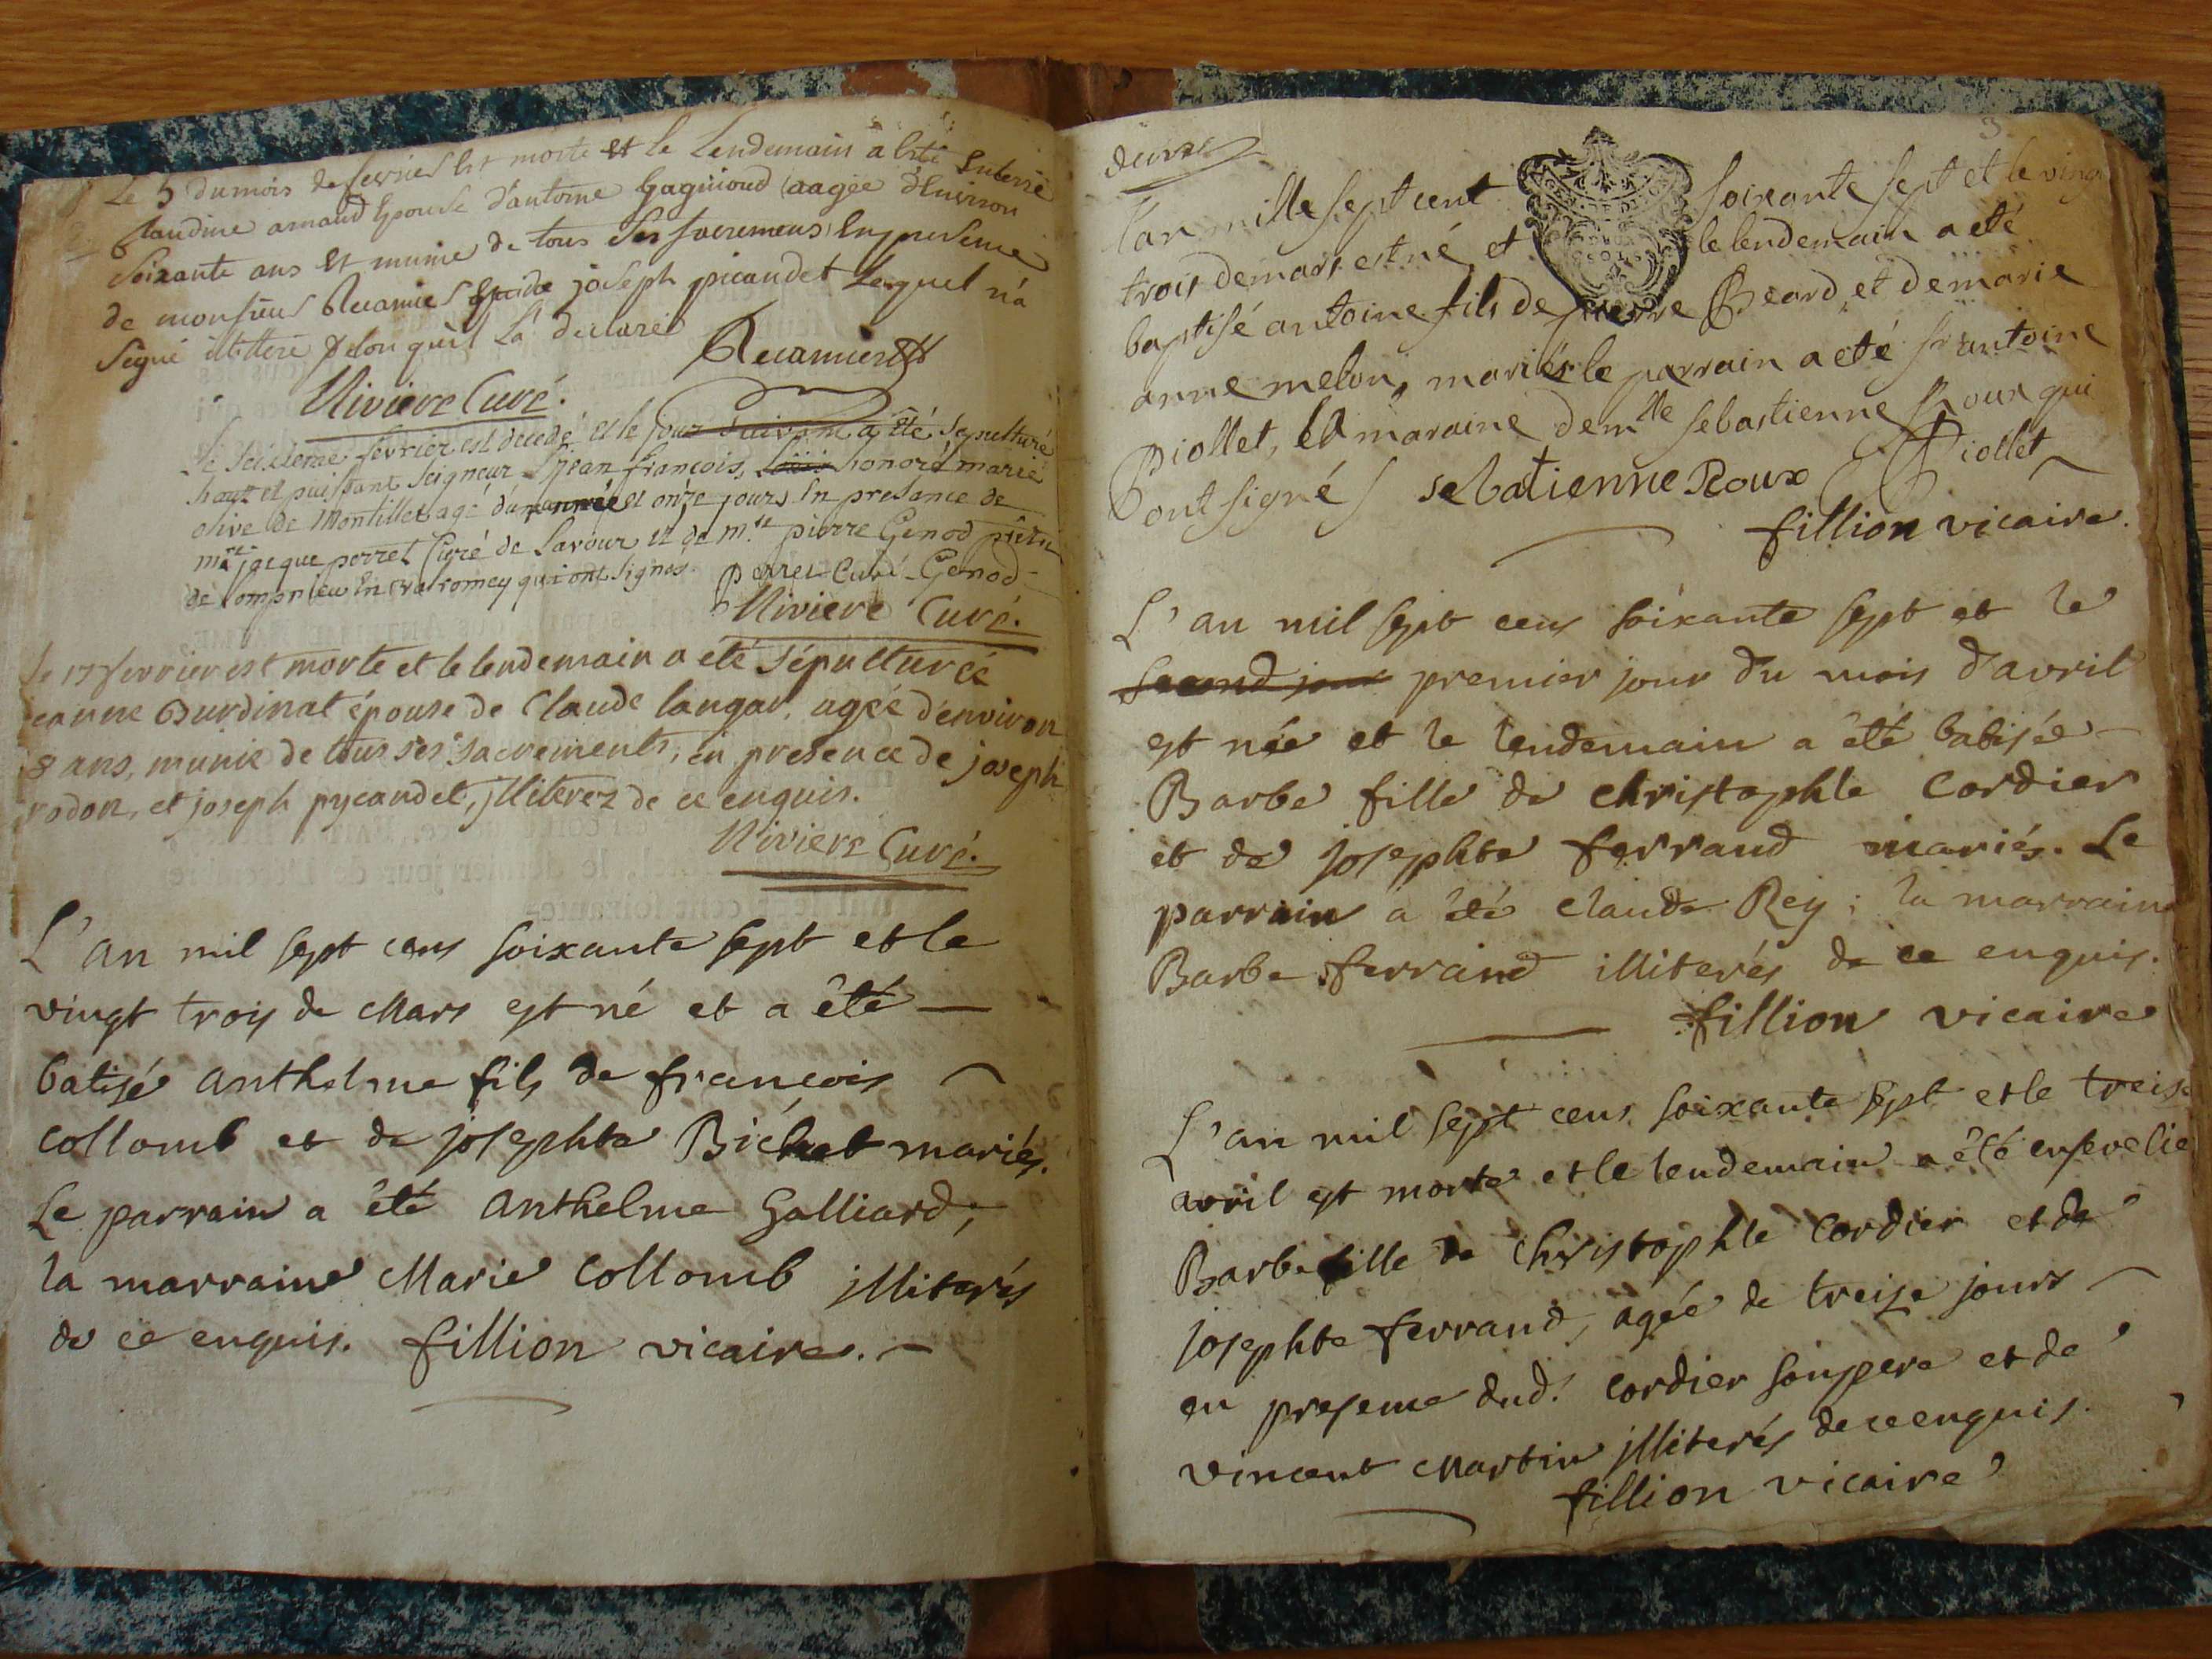 Le 5 du mois de fevrier Est morte Et le Lendemain a Esté Enterré
Claudine arnaud Epouse d'antoine Gagnioud aagée d'Environ
Soixante ans Et munie de tous Ses sacremens En presence
de monsieur Recamier joseph picaudet Lequel n'a
Signé illettere selon quil La declaré
Recamier
Riviere Curé.
le seizieme fevrier est decedé et le jour suivant a été sepulturé
haut et puissant seigneur jean françois, honoré marie
olive de Montillet agé d'un et onze jours En presance de
mre jacque perret Curé de Lavour et de mre pierre Genod prêtre
de Lompnieu En valromey qui ont signés. Perret Curé - Genod -
Riviere Curé.
le 17 fevrier est morte et le lendemain a eté sépulturée
jeanne Burdinat épouse de Claude langar, agée d'environ
8 ans, munie de tous ses sacrements, en presence de joseph
rodon, et joseph pycaudet, jlliterez de ce enquis.
Riviere Curé.
L'an mil sept cens soixante sept et le
vingt trois de Mars est né et a êté
batisé anthelme fils de françois
collomb et de josephte Bichet mariés.
Le parrain a êté anthelme Galliard;
la marraine Marie collomb jlliterés
de ce enquis. fillion vicaire.
3
deuxe
l'an mille sept cent soixante sept et le vingt
trois de mars est né et le lendemain a eté
baptisé antoine fils de pierre Beard et de marie
anne melon, mariés le parrain a eté sr antoine
Piollet, la maraine demlle sebastienne Roux qui
ont signé sebatienne Roux Piollet
fillion vicaire.
L'an mil sept cens soixante sept et le
second jour premier jour du mois d'avril
est née et le lendemain a êté batisée
Barbe fille de christophle cordier
et de josephte ferrand mariés. Le
parrain a êté claude Rey; la marraine
Barbe ferrand illiterés de ce enquis.
fillion vicaire
L'an mil sept cens soixante sept et le treise
avril est morte et le lendemain a êté ensevelie
Barbe fille de christophle cordier et de
josephte ferrand, agée de treize jours
en presence dud. cordier son pere et de
vincent Martin jlliterés de ce enquis.
fillion vicaire